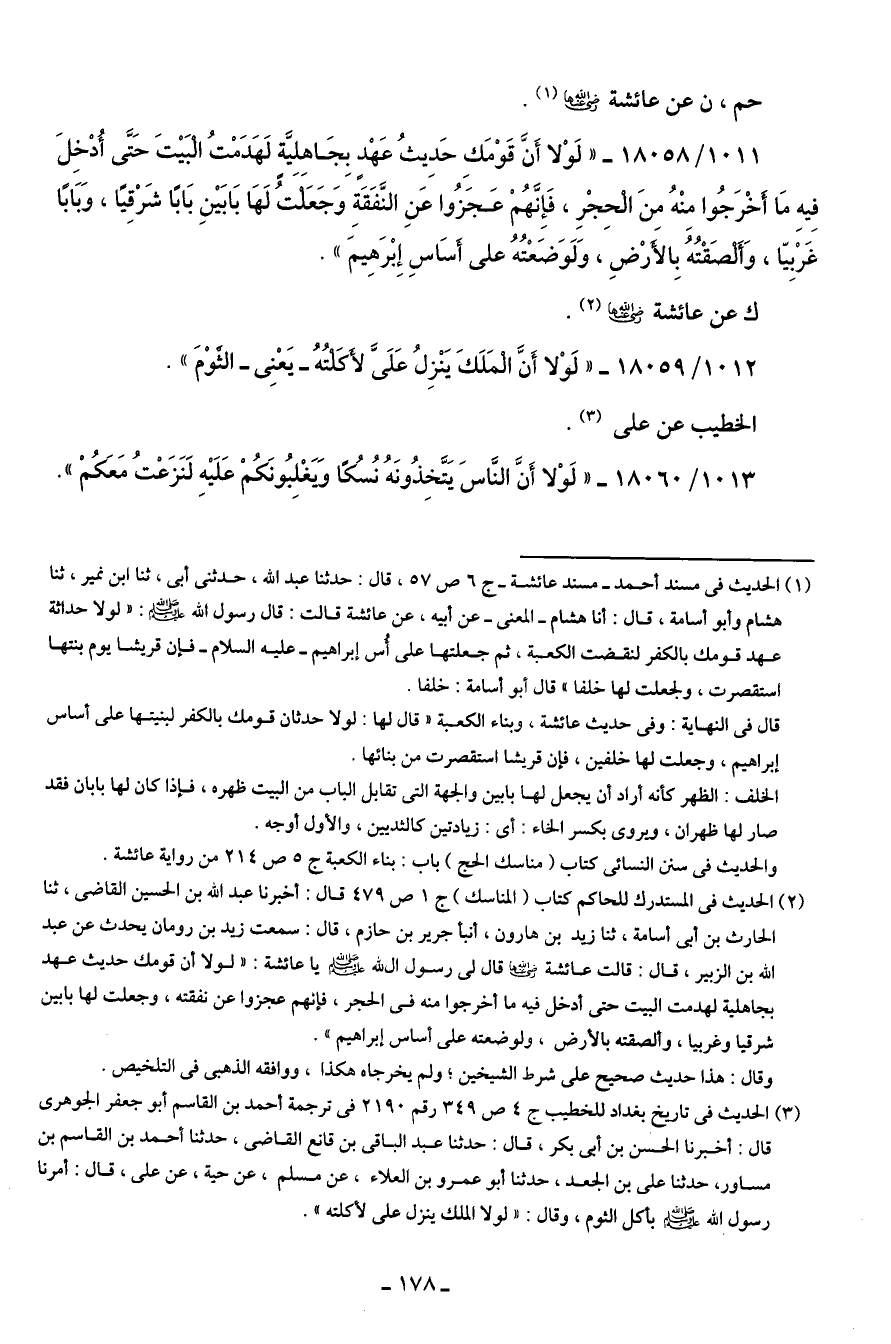 حم ، ن عن عائشة رضي الله عنها (١) .
١٨٠٥٨/١٠١١ ـ « لَوْلا أَنَّ قَوْمَك حَدِيثُ عَهْدٍ بِجَاهِلِيَّة لَهَدَمْتُ الْبَيْتَ حَتَّى أُدْخِلَ
فِيهِ مَا أَخْرَجُوا مِنْهُ مِنَ الْحِجْرِ ، فَإِنَّهُمْ عَجَزُوا عَنِ النَّفَقَةِ وَجَعَلْتُ لَهَا بَابَيْنِ بَابًا شَرْقِيًا ، وَبَابًا
غَرْبِيّا ، وَأَلْصَقْتُهُ بِالأَرْضِ ، وَلَوَضَعْتُهُ على أَسَاسِ إِبْرَهِيمَ » .
ك عن عائشة رضي الله عنها (٢) .
١٨٠٥٩/١٠١٢ ـ « لَوْلا أَنَّ الْمَلَكَ يَنْزِلُ عَلَىَّ لأَكَلْتُهُ ـ يَعْنِى ـ الثُّوْمَ » .
الخطيب عن على (٣) .
١٨٠٦٠/١٠١٣ ـ « لَوْلا أَنَّ النَّاسَ يَتَّخِذُونَهُ نُسُكًا وَيَغْلِبُونَكُمْ عَلَيْهِ لَنَزَعْتُ مَعَكُمْ ».
(١) الحديث فى مسند أحمد ـ مسند عائشة ـ ج ٦ ص ٥٧ ، قال : حدثنا عبد الله ، حدثنى أبى ، ثنا ابن نمير ، ثنا
هشام وأبو أسامة ، قال : أنا هشام ـ المعنى ـ عن أبيه ، عن عائشة قالت : قال رسول الله ﷺ : « لولا حداثة
عهد قومك بالكفر لنقضت الكعبة ، ثم جعلتها على أُس إبراهيم ـ عليه السلام ـ فإن قريشا يوم بنتها
استقصرت ، ولجعلت لها خلفا » قال أبو أسامة : خلفا .
قال فى النهاية : وفى حديث عائشة ، وبناء الكعبة « قال لها : لولا حدثان قومك بالكفر لبنيتها على أساس
إبراهيم ، وجعلت لها خلفين ، فإن قريشا استقصرت من بنائها .
الخلف : الظهر كأنه أراد أن يجعل لها بابين والجهة التى تقابل الباب من البيت ظهره ، فإذا كان لها بابان فقد
صار لها ظهران ، ويروى بكسر الخاء : أى : زيادتين كالثديين ، والأول أوجه .
والحديث فى سنن النسائى كتاب ( مناسك الحج ) باب : بناء الكعبة ج ٥ ص ٢١٤ من رواية عائشة .
(٢) الحديث فى المستدرك للحاكم كتاب ( المناسك ) ج ١ ص ٤٧٩ قال : أخبرنا عبد الله بن الحسين القاضى ، ثنا
الحارث بن أبى أسامة ، ثنا زيد بن هارون ، أنبأ جرير بن حازم ، قال : سمعت زيد بن رومان يحدث عن عبد
الله بن الزبير ، قال : قالت عائشة رضي الله عنها قال لى رسول الله ﷺ يا عائشة : « لولا أن قومك حديث عهد
بجاهلية لهدمت البيت حتى أدخل فيه ما أخرجوا منه فى الحجر ، فإنهم عجزوا عن نفقته ، وجعلت لها بابين
شرقيا وغربيا ، وألصقته بالأرض ، ولوضعته على أساس إبراهيم » .
وقال : هذا حديث صحيح على شرط الشيخين ؛ ولم يخرجاه هكذا ، ووافقه الذهبى فى التلخيص .
(٣) الحديث فى تاريخ بغداد للخطيب ج ٤ ص ٣٤٩ رقم ٢١٩٠ فى ترجمة أحمد بن القاسم أبو جعفر الجوهرى
قال : أخبرنا الحسن بن أبى بكر ، قال : حدثنا عبد الباقى بن قانع القاضى ، حدثنا أحمد بن القاسم بن
مساور، حدثنا على بن الجعد ، حدثنا أبو عمرو بن العلاء ، عن مسلم ، عن حية ، عن على ، قال : أمرنا
رسول الله ﷺ بأكل الثوم ، وقال : « لولا الملك ينزل على لأكلته » .
ـ ١٧٨ ـ